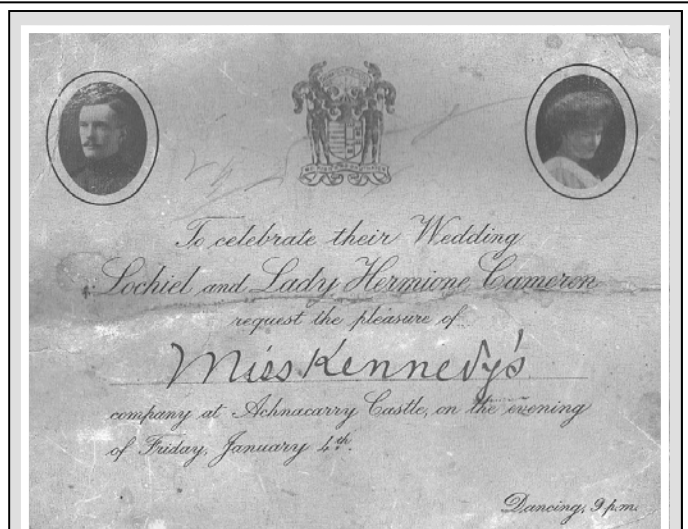 To celebrate their Wedding
Lochiel and Lady Hermione Cameron
request the pleasure of
Miss Kennedy's
company at Achnacarry Castle, on the evening
of Friday, January 4th.
Dancing, 9 p.m.